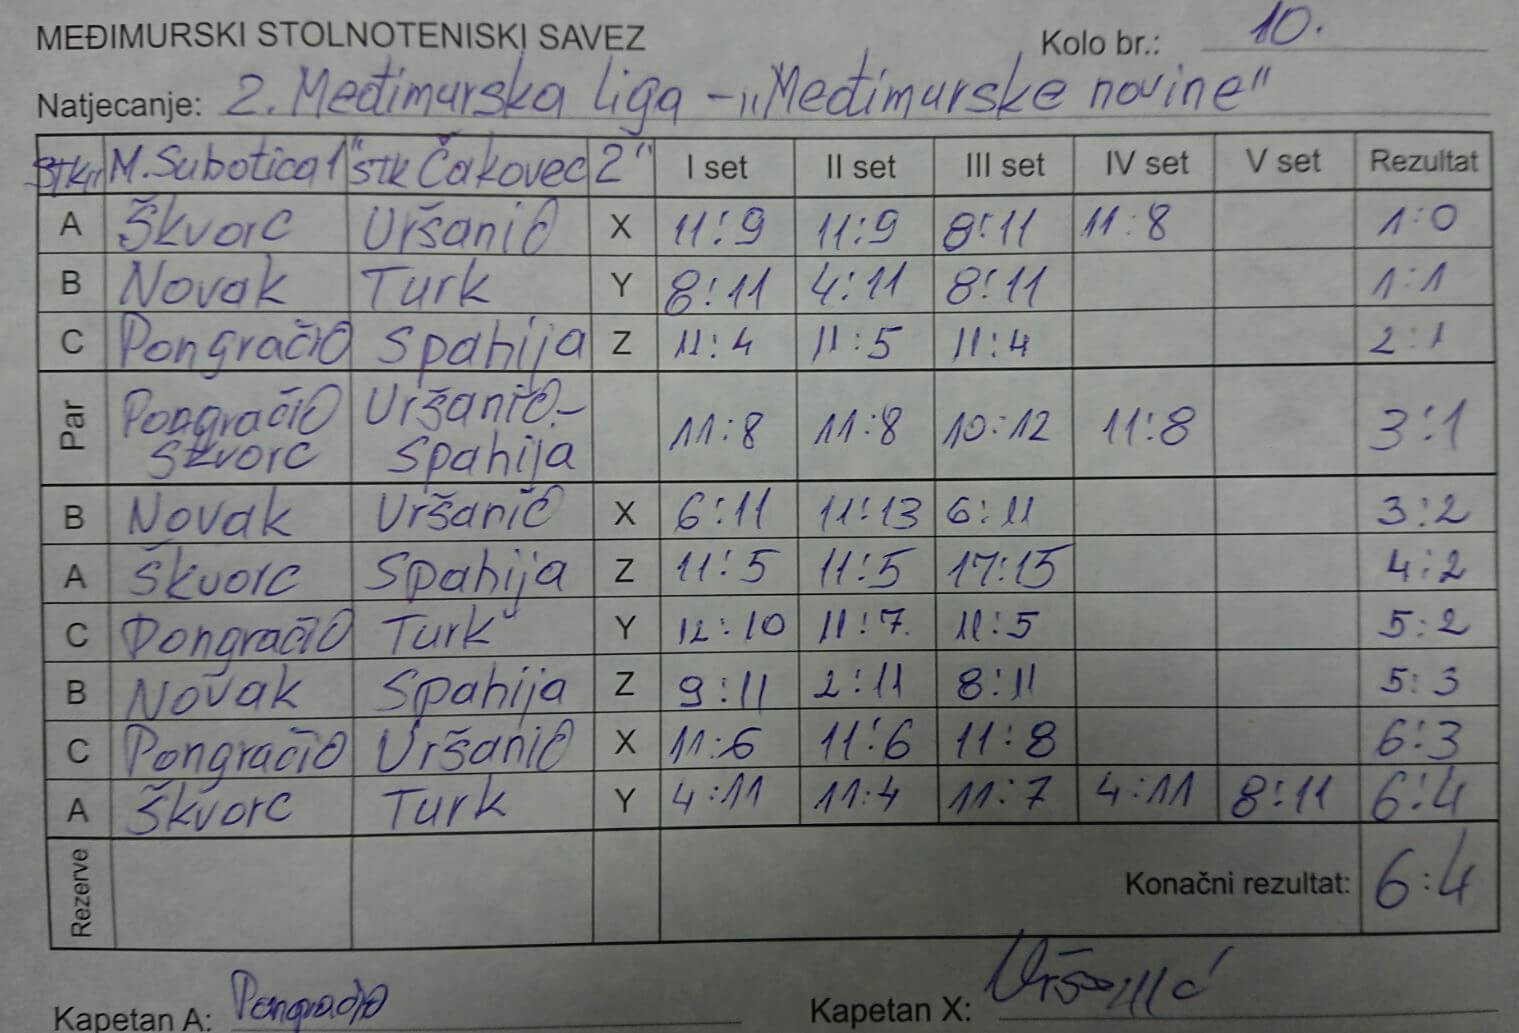 MEĐIMURSKI STOLNOTENISKI SAVEZ
Kolo br.: 10.
Natjecanje: 2. Međimurska liga - "Međimurske novine"
STK "M. Subotica 1" STK Čakovec 2" I set II set III set IV set V set Rezultat
A Škvorc Uršanić X 11:9 11:9 8:11 11:8 1:0
B Novak Turk Y 8:11 4:11 8:11 1:1
C Pongračić Spahija Z 11:4 11:5 11:4 2:1
Par Pongračić Uršanić- 11:8 11:8 10:12 11:8 3:1
Škvorc Spahija
B Novak Uršanić X 6:11 11:13 6:11 3:2
A Škvorc Spahija Z 11:5 11:5 17:15 4:2
C Pongračić Turk Y 12:10 11:7. 11:5 5:2
B Novak Spahija Z 9:11 2:11 8:11 5:3
C Pongračić Uršanić X 11:6 11:6 11:8 6:3
A Škvorc Turk Y 4:11 11:4 11:7 4:11 8:11 6:4
Rezerve Konačni rezultat: 6:4
Kapetan A: Pongračić Kapetan X: Uršanić